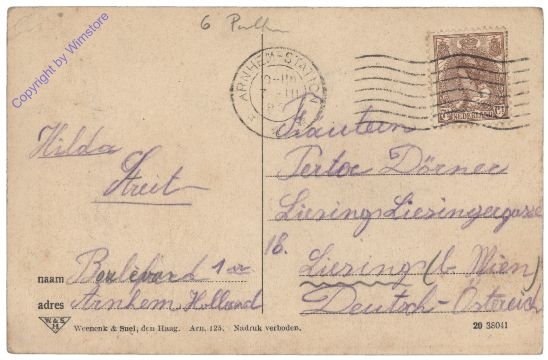 Copyright by Wimstore
6
ARNHEM-STATION
NEDERLAND
Hilda
Streit
naam Boulevard 1
adres Arnhem Holland
Fräulein
Dörner
Liesing Liesingergasse
18.
Liesing (b. Wien)
Deutsch-Östereich
W. & S.
H
Weenenk & Snel, den Haag. Arn. 125. Nadruk verboden.
20 38041